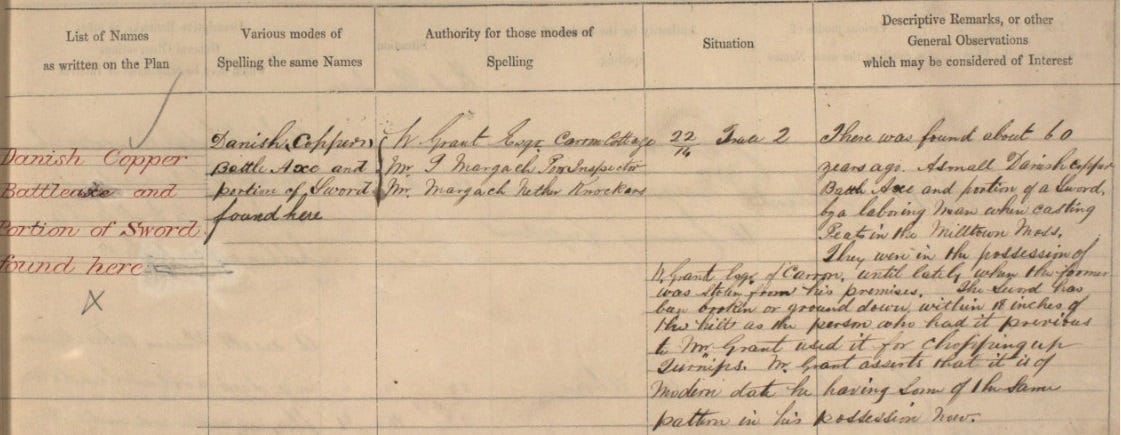 List of Names
as written on the Plan
Various modes of
Spelling the same Names
Authority for those modes of
Spelling
Situation
Descriptive Remarks, or other
General Observations
which may be considered of Interest
Danish Copper
Battleaxe and
Portion of Sword
found here
Danish Copper
Battle Axe and
portion of Sword
found here
W. Grant Esqr. Carron Cottage
Mr. Margach Poor Inspector
Mr. Margach Nether Knockers
22 Trace 2
There was found about 60
years ago. A small Danish copper
Battle Axe and portion of a Sword,
by a laboring Man when casting
Peats in the Milltown Moss.
They were in the possession of
W. Grant Esqr. of Carron, until lately when the former
was stolen from his premises. The Sword has
been broken or ground down within 18 inches of
the hilt as the person who had it previous
to Mr. Grant used it for chopping up
Turnips. Mr. Grant asserts that it is of
Modern date he having some of the same
pattern in his possession now.